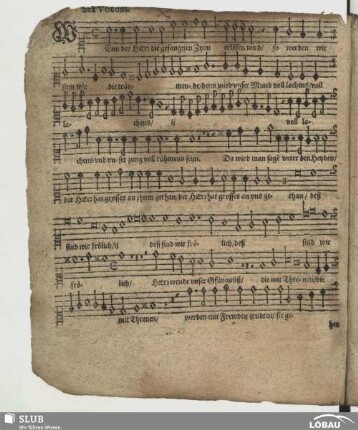 Enn der HErr die gefangnen Zion erlösen wird/ so werden wir
seyn wie die träu- men- de/ denn wird vnser Mund voll lachens/ voll
la- chens/ ij voll la-
chens vnd vn- ser zung voll rühmens seyn. Da wird man sagē vnter den Heyden/
der HErr hat grosses an jhnen gethan/ der HErr hat grosses an vns ge- than/ deß
sind wir frölich/ ij deß sind wir frö- lich, deß sind wir
frö- lich/ HErr wende vnser Gefängnüß/ die mit Thrä- nen/ die
mit Threnen/ werden mit Frewden erndten/ sie ge-
SLUB
Wir führen Wissen.
LÖBAU